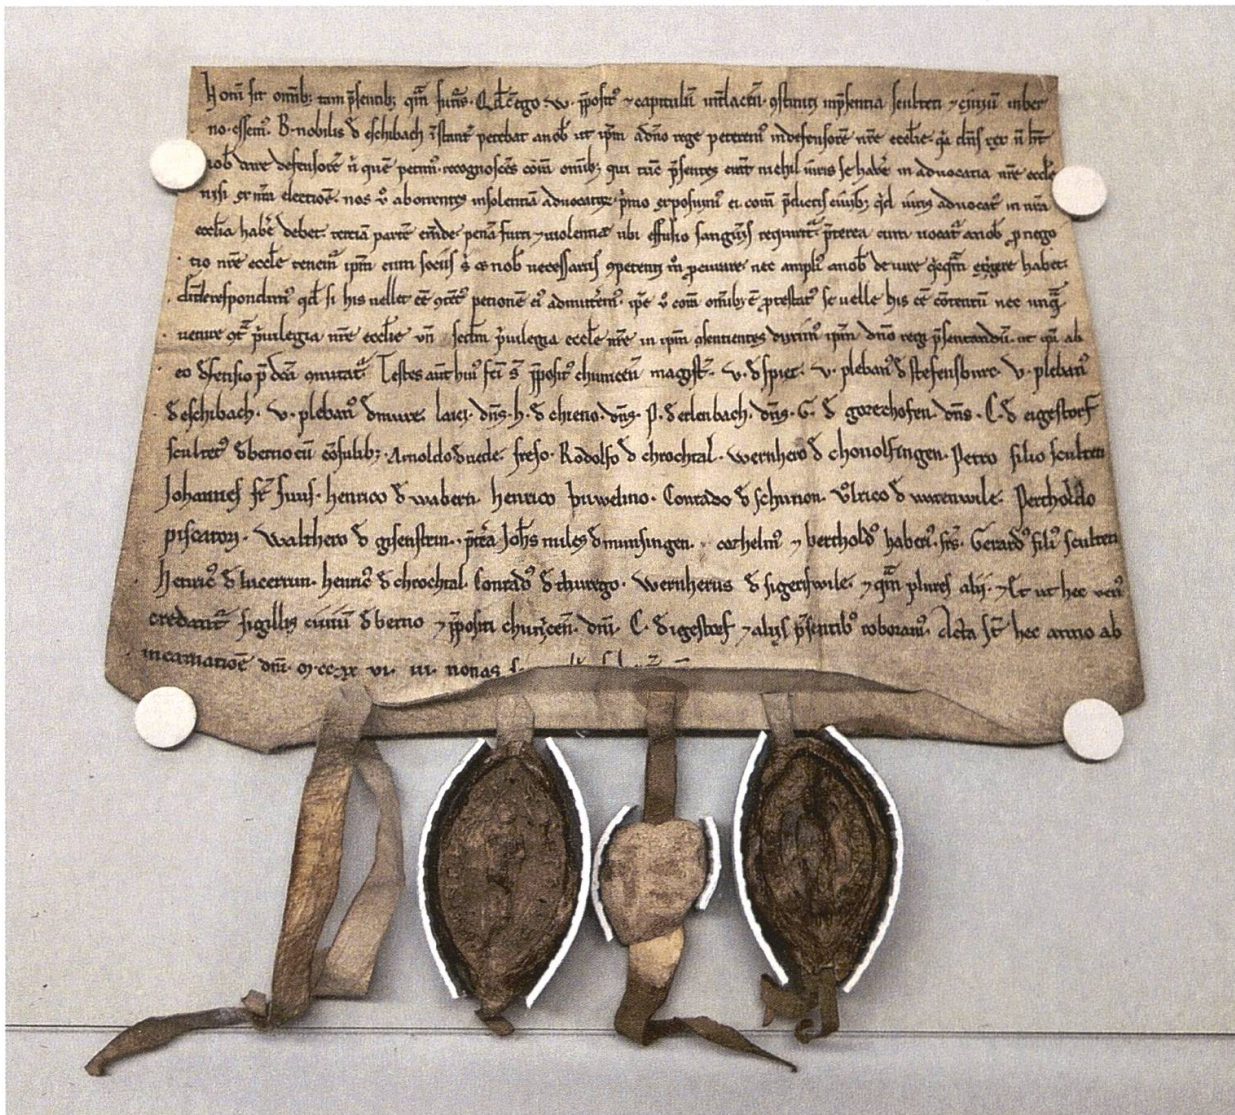 Notū sit omīb; tam p̄sentib; qͣm futuris. Qd̄ cū ego .W. p̄posit⁹ ⁊ capitulū int̄lacēn. ꝯstituti in p̄sentia sculteti ⁊ ciuiū in ber
no. essem⁹. B. nobilis d̄ eschibach īstant̄ petebat a nob̄ ut ip̄m a dn̄o rege peterem⁹ in defensorē nr̄e ecclīe. q̄a dn̄s rex n̄ h̄t
nob̄ dare defensorē n̄ quē petim⁹. recognoscēs corā omīb; qui tūc p̄sentes erāt nichil iuris se habē in aduocatia nr̄e eccl̄e
nisi ex nr̄a electiōe. nos v̄ aborrentes insolentiā aduocatoꝝ p̄mo exposuim⁹ ei corā p̄dictis ciuib; qd̄ iuris aduocat⁹ in nr̄a
ecclīa habē debet. terciā partē emde penā furti ⁊ uiolentiā ubi effusio sanguīs requirit̄. p̄terea cum uocat⁹ a nob̄ p nego
tio nr̄e eccl̄e uenerit ipm̄ cum sociis s̄ ⁊ nob̄ necessariis ꝯpetenti m̄ procurare nec ampli⁹ a nob̄ de iure q̄cqͣm exigere habet.
respondim⁹ qd̄ si his uellet eē ꝯtēt⁹ petitionē ei⁹ admitterem⁹. ip̄e v̄ corā omīb; ē p̄testat⁹ se uelle his eē ꝯtentū nec unqͣ
uenire ꝯtͣ p̄uilegia nr̄e ecclīe. vn̄ sectm p̄uilegia eccl̄e nr̄e in ip̄m ꝯsentientes duxim⁹ ip̄m dn̄o regi p̄sentandū. ut qi ab
eo d̄fensio p̄dc̄a Testes aut̄ hui⁹ fc̄i s̄t p̄posit⁹ chunicēn. magist̄. v. d̄ spiez. v. pleban⁹ d̄ stefensburc. v. pleban⁹
d̄ eschibach. v. pleban⁹ d̄ mure. laici. dn̄s. h. d̄ chieno. dn̄s. P. d̄ erlenbach. dn̄s. G. d̄ gozechofen. dn̄s. C. d̄ eigestorf
scultet⁹ d̄ berno cū cōsulib; Arnoldo d̄ riede. freso. Rodolfo d̄ chrochtal. Wernhero d̄ chonolfingen. Petro filio sculteti
Johannes fr̄ suus. henrico d̄ wabern. henrico buwelino. Conrado d̄ schunon. Vlrico d̄ wirenwile. Perchtoldo
piscatori. Walthero d̄ gisenstein. p̄t̄ea Joh̄s miles d̄ munsingen. ⁊ berthold⁹ haberi. frs̄. Gerard⁹ fili⁹ sculteti
Henric⁹ d̄ lucerrun. henric⁹ d̄ chrochtal. Conrad⁹ d̄ thurego. Wernherus d̄ sigerswile. ⁊ qͣm plures alij. Et ut hec veri⁹
credant̄ sigillis ciuiū d̄ berno ⁊ p̄positi chunīcēn. dn̄i. C. d̄ igestorf ⁊ alijs p̄sentib⁹ roboram⁹. Acta s̄t hec anno ab
incarnatiōe dn̄i. M. cc. xx vi. iii nonas